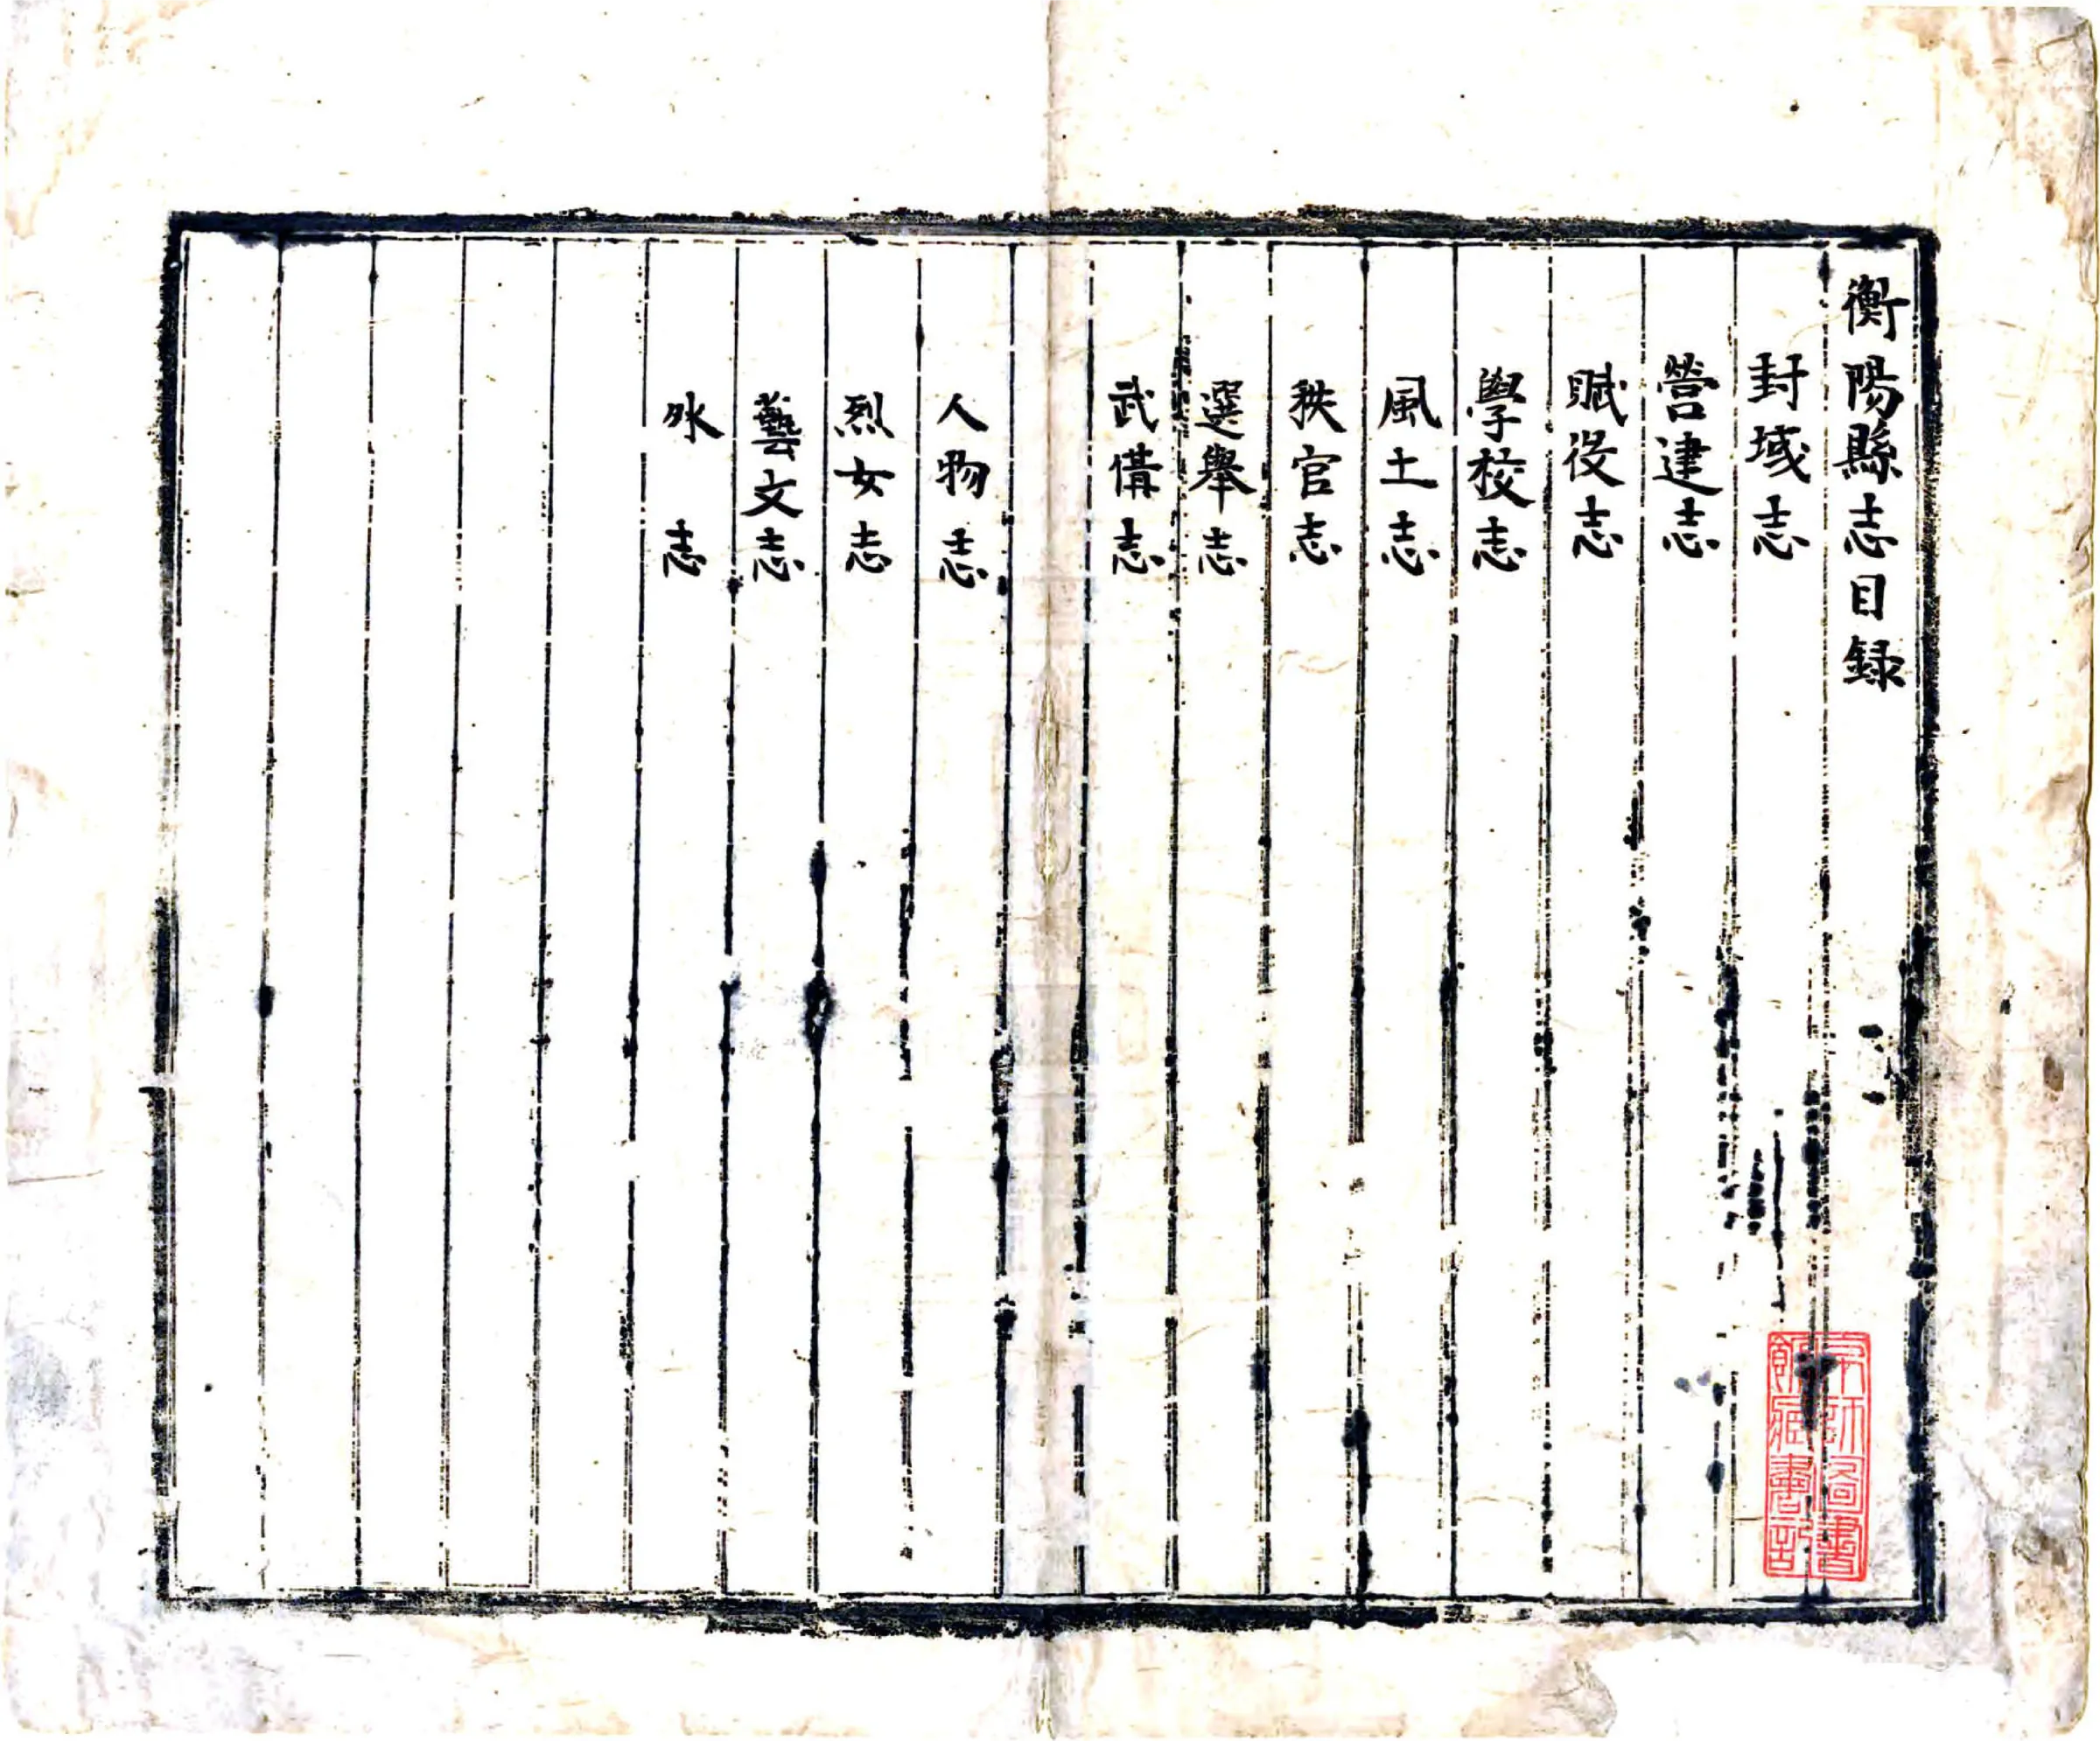 衡陽縣志目録
封域志
營建志
賦役志
學校志
風土志
秩官志
選舉志
武備志
人物志
烈女志
藝文志
外志
京師圖書
館藏書記